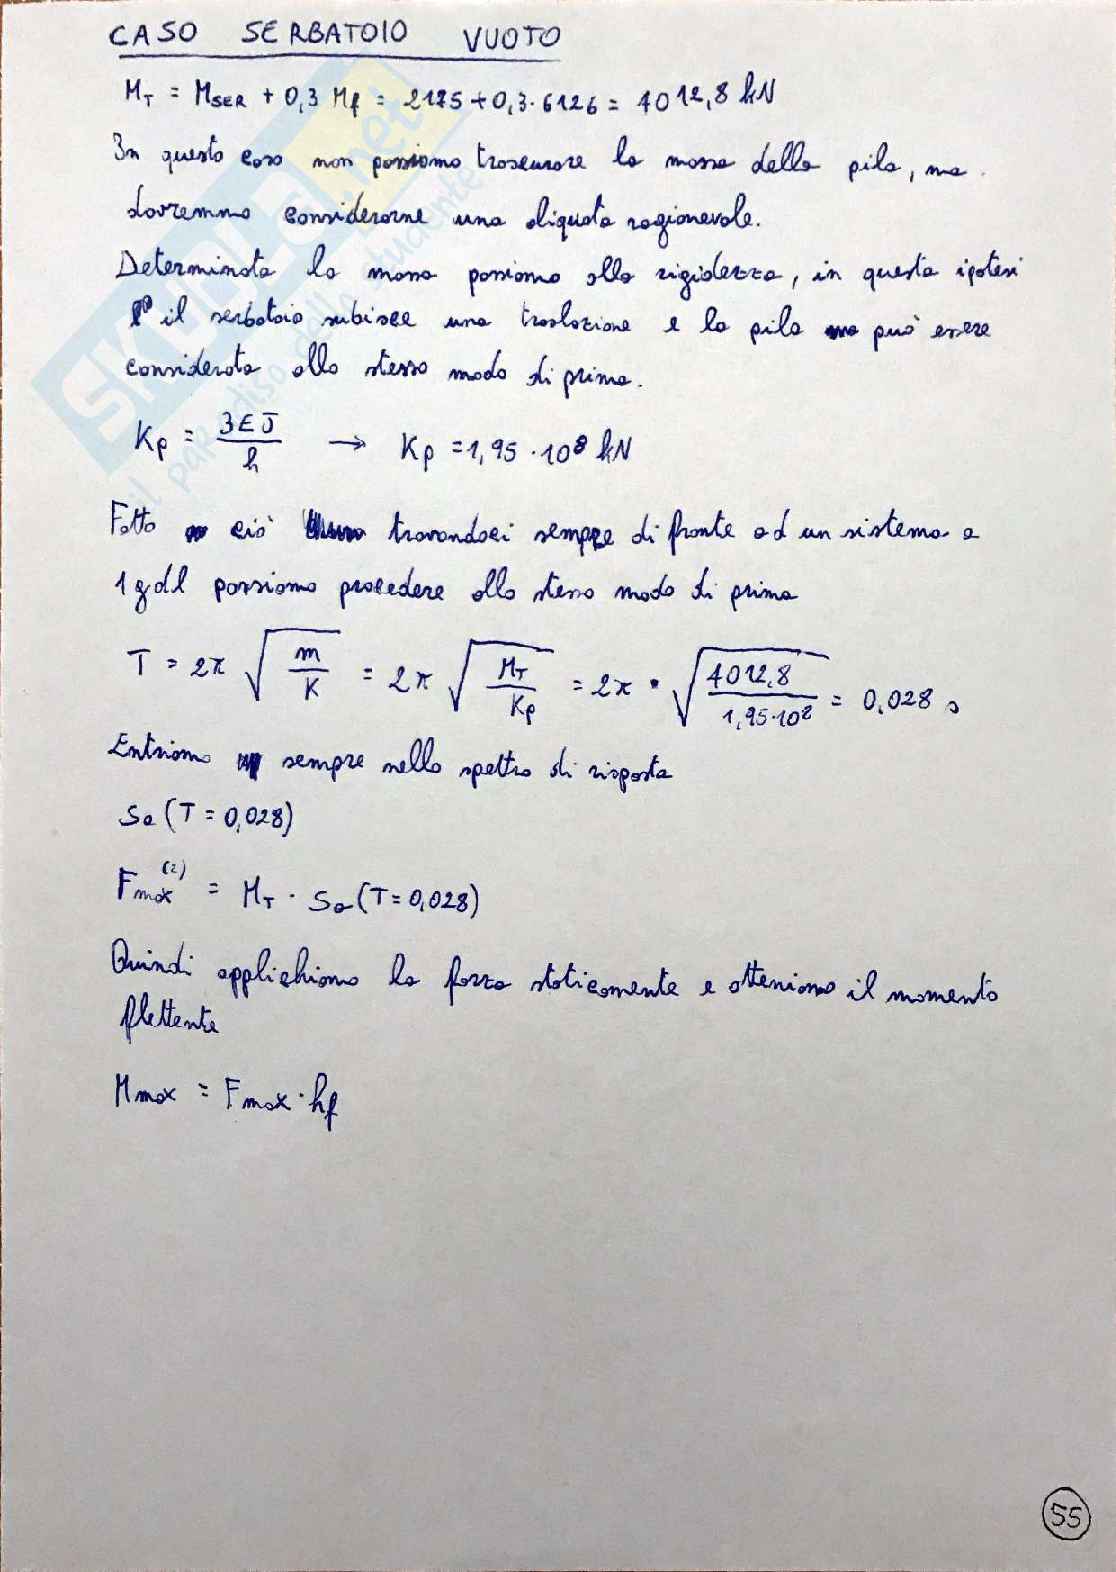 CASO SERBATOIO VUOTO
M_T = M_SER + 0,3 M_f = 2175 + 0,3 · 6126 = 4012,8 kN
In questo caso non possiamo trascurare la massa della pila, ma
dovremmo considerarne una aliquota ragionevole.
Determinata la massa possiamo alla rigidezza, in questa ipotesi
il serbatoio subisce una traslazione e la pila può essere
considerata allo stesso modo di prima.
K_p = 3EJ / h → K_p = 1,95 · 10^8 kN
Fatto ciò trovandoci sempre di fronte ad un sistema a
1 gdl possiamo procedere allo stesso modo di prima
T = 2π √(m / K) = 2π √(M_T / K_p) = 2π · √(4012,8 / 1,95·10^8) = 0,028 s
Entriamo sempre nello spettro di risposta
Sa (T = 0,028)
F_max^(2) = M_T · Sa (T = 0,028)
Quindi applichiamo la forza staticamente e otteniamo il momento
flettente
M_max = F_max · h_f
55
SKUOLA.net
il paradiso dello studente